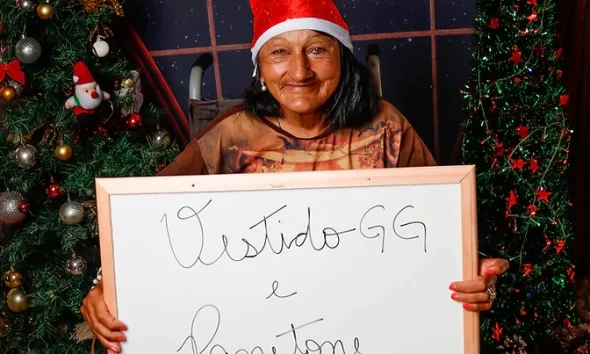 Vestido GG
e
Panetone